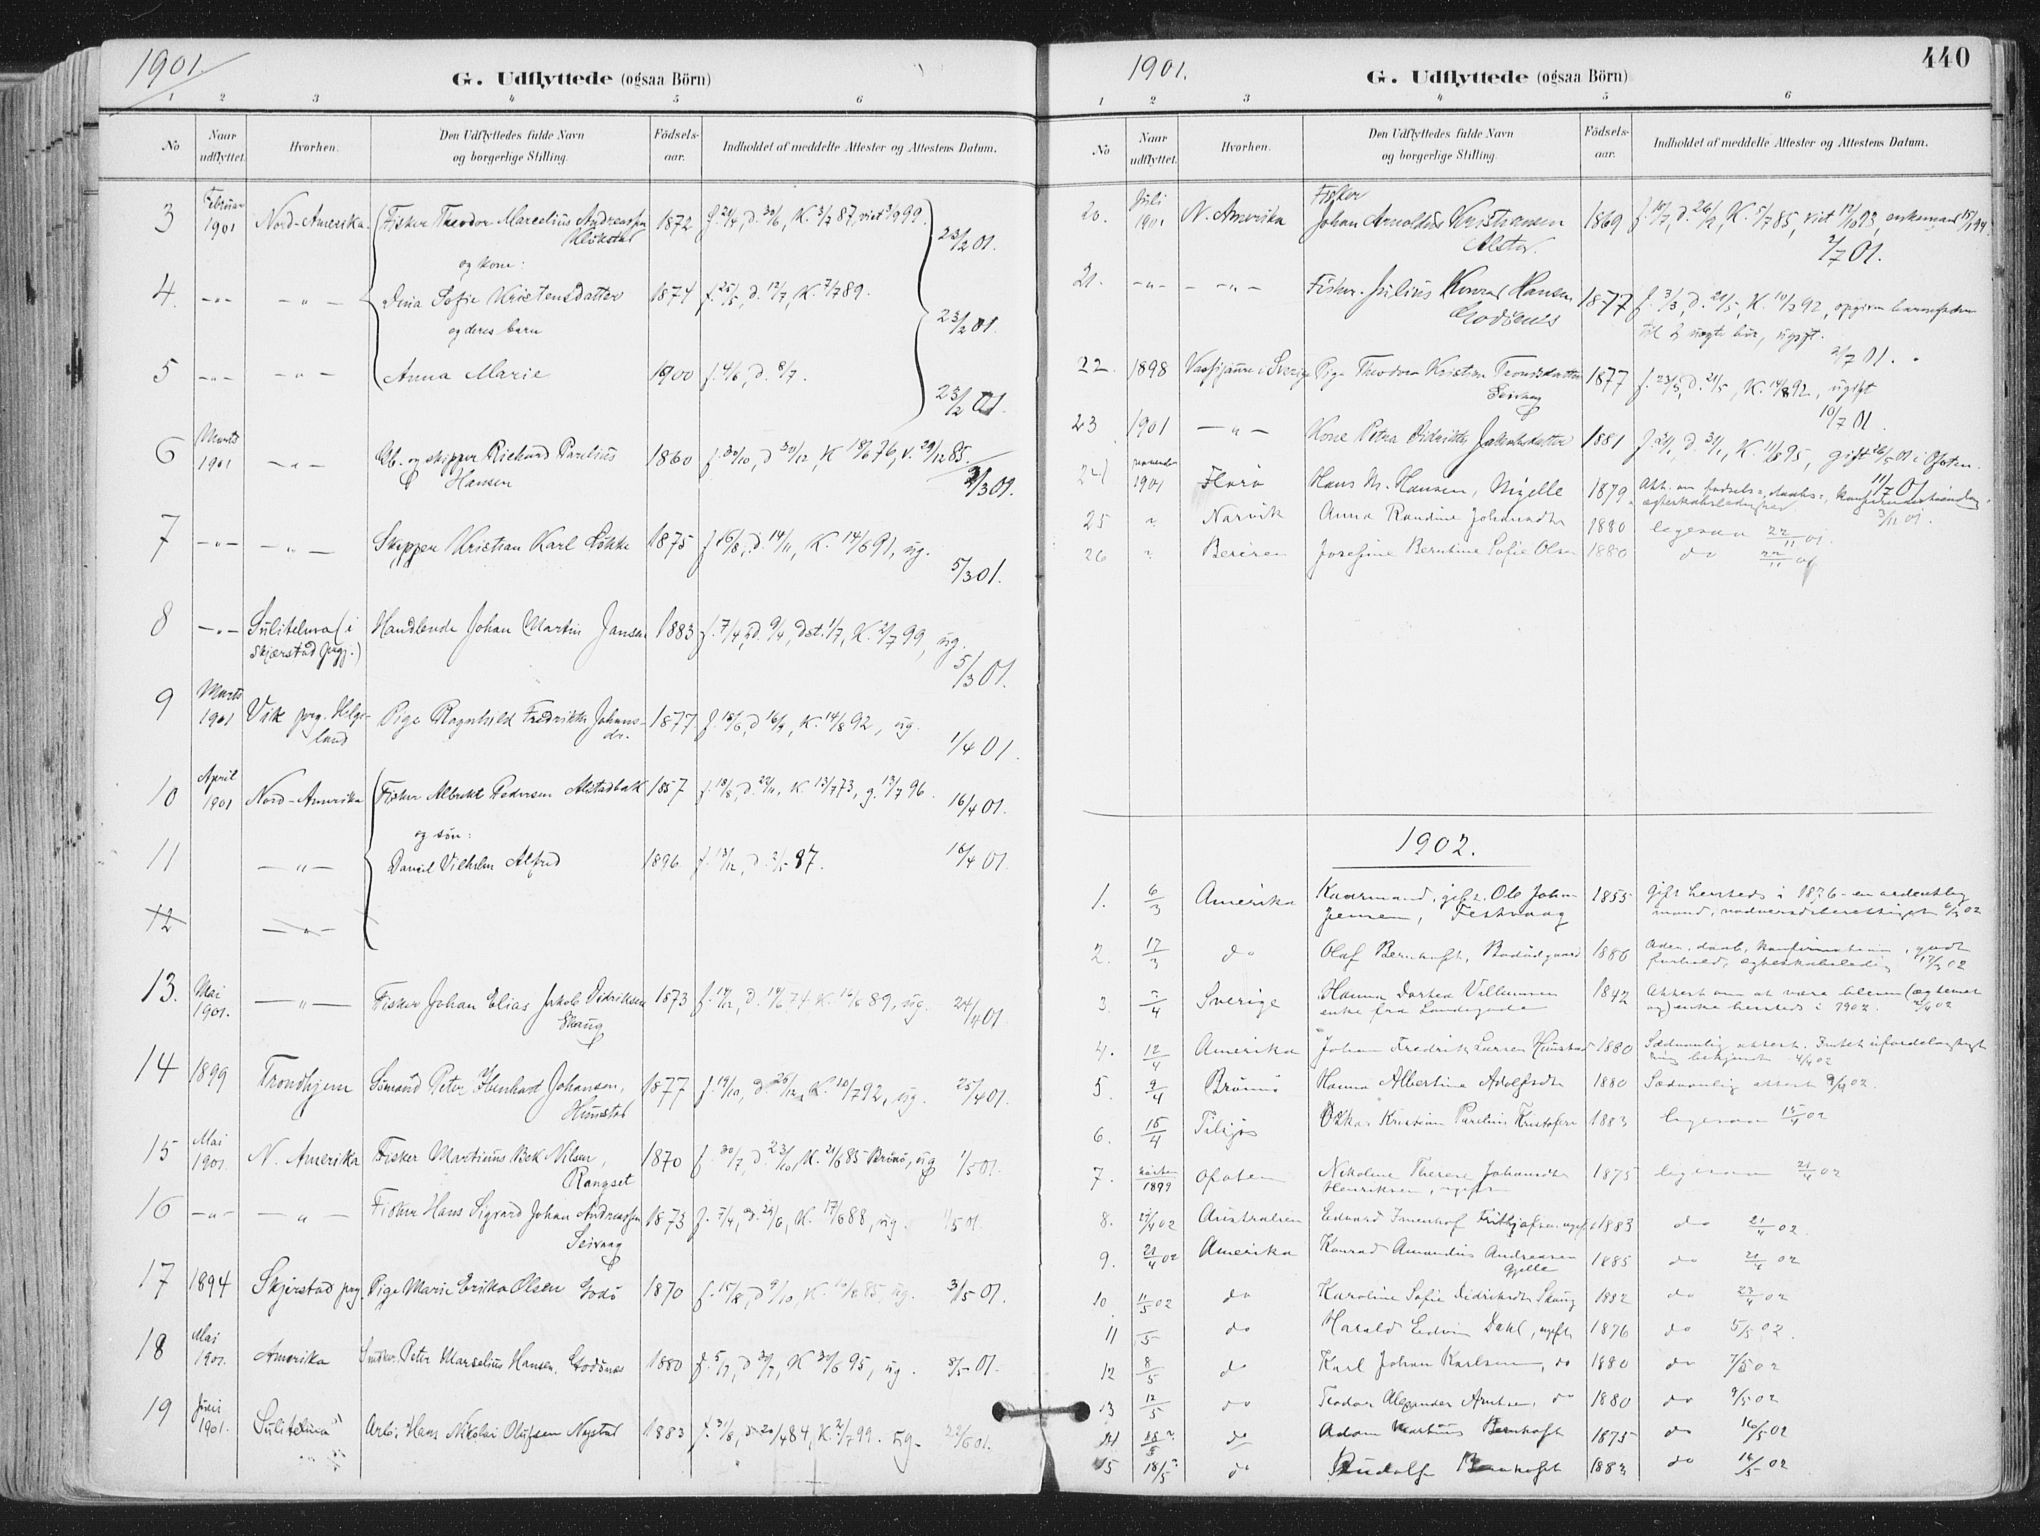 1901.
G. Udflyttede (ogsaa Börn)
1 2 3 4 5 6
No
Naar udflyttet.
Hvorhen.
Den Udflyttedes fulde Navn og borgerlige Stilling.
Födsels-aar.
Indholdet af meddelte Attester og Attestens Datum.
3 Februar 1901 Nord-Amerika. Fisker Theodor Marcelius Andreassen 1872 f. 21/4, d. 30/6, K. 3/7 87, viet 3/9 99. 23/2 01.
og kone:
4. -"- -"- Dina Sofie Kristensdatter 1874 f. 25/5, d. 12/7, K. 7/7 89. 23/2 01.
og deres barn
5 -"- -"- Anna Marie 1900 f. 4/6, d. 8/7. 23/2 01.
6 Marts 1901 -"- og skipper Richard Parelius Hansen 1860 f. 30/10, d. 30/12, K. 18/6 76, v. 29/12 85. /3 01.
7 -"- -"- Skipper Kristian Karl Løkke 1875 f. 16/8, d. 14/11, K. 14/6 91, ug. 5/3 01.
8 -"- Sulitelma (i Skjerstad prgj.) Handlende Johan Martin Jansen 1883 f. 7/4, d. 9/4, dst. 1/7, K. 2/7 99, ug. 5/3 01.
9 Marts 1901 Vik prg. Helgeland Pige Ragnhild Fredrikke Johansdr. 1877 f. 18/6, d. 16/9, K. 14/8 92, ug. 1/4 01.
10 April 1901 Nord-Amerika Fisker Albrekt Pedersen Alstadbak 1857 f. 18/8, d. 22/11, K. 13/7 73, g. 13/7 96. 16/4 01.
og søn:
11 -"- Daniel Vilhelm Alfred 1896 f. 13/12, d. 2/5 97. 16/4 01.
12 -"-
13. Mai 1901. -"- Fisker Johan Elias Jakob Didriksen Skaug 1873 f. 14/12, d. 14/6 74 K. 16/6 89, ug. 24/4 01
14 1899 Trondhjem Sømand Peter Ebenhard Johansen, Hunstad 1877 f. 19/10, d. 26/12, K. 10/7 92, ug. 25/4 01.
15 Mai 1901. N. Amerika Fisker Martinus Bek Nilsen, Rangset 1870 f. 30/7, d. 23/10, K. 21/6 85 Brønø, ug 1/5 01.
16 -"- -"- Fisker Hans Sigvard Johan Andreassen Seivaag 1873 f. 7/4, d. 29/6, K. 17/6 88, ug. 1/5 01.
17 1894 Skjerstad prg. Pige Marie Erika Olsen Godø 1870 f. 15/8, d. 9/10, K. 16/8 85, ug. 3/5 01.
18 Mai 1901. Amerika Peter Marselius Hansen, Godønes 1880 f. 5/7, d. 30/7, K 30/6 95, ug. 8/5 01.
19 Juni 1901. Sulitelma Arb. Hans Nikolai Olufsen Nystad 1883 f. 31/8, d. 20/4 84, K. 2/7 99. ug. 22/6 01.
1901.
G. Udflyttede (ogsaa Börn)
440
1 2 3 4 5 6
No
Naar udflyttet.
Hvorhen.
Den Udflyttedes fulde Navn og borgerlige Stilling.
Födsels-aar.
Indholdet af meddelte Attester og Attestens Datum.
20. Juli 1901 N. Amerika Fisker Johan Arnoldus Kristiansen Alster. 1869 f. 10/7, d. 26/9, K. 5/7 85, viet 12/10 93, enkemand 15/1 94. 2/7 01.
21. -"- -"- Fisker Julius Konrad Hansen Godønes 1877 f. 3/3, d. 21/5, K. 10/7 92, opgiven barnefader til 2 uægte bør, ugift. 2/7 01.
22. 1898 Vassijaure i Sverige Pige Theodora Kristine Tronsdatter Seivaag 1877 f. 23/3, d. 21/5, K. 14/8 92, ugift 10/7 01.
23 1901 -"- Kone Petra Didrikke Jakobsdatter 1881 f. 2/1, d. 3/1, K. 11/8 95, gift 26/5 01 i Ofoten. 11/7 01
24 november 1901 Florø Hans M. Hansen, Mjelle 1879 Att. om fødsels-, daabs-, 3/11 01.
25 " Narvik Anna Randine Johansdtr 1880 ligesaa 22/11 01.
26 " Beieren Josefine Berntine Sofie Olsen 1880 do 22/11 01
1902.
1. 6/3 Amerika Kaarmand, gift. Ole Johan Jensen, Festvaag 1855 gift hersteds i 1876 - en ordentlig mand, nadverdsberettiget 6/3 02
2. 17/3 do Olaf Bernhoft, Bodøgaard 1886 daab, konfirmation, godt forhold, egteskabsledig 17/3 02
3. /4 Sverige Hanna Dorthea Villumsen enke fra Landegode 1842 Attest om at være bleven (ægteviet og) enke hersteds i 1902. 2/4 02
4. 12/4 Amerika Johan Fredrik Larsen Hunstad 1880 Sædvanlig attest. Intet ufordelagtigt bekjendt 4/4 02
5. 9/4 Brønnø Hanna Albertine Adolfsdtr 1880 Sædvanlig attest 9/4 02.
6. 15/4 Oskar Kristian Parelius Kristofersen 1883 ligesaa 15/4 02
7. 1899 Ofoten Nikoline Therese Johansdtr Henriksen, ugift 1875 ligesaa 21/4 02
8. 21/4 02 Australien Edvard Frithjofsen, ugift 1883 do 21/4 02.
9. 21/4 02 Amerika Konrad Amandus Andreasen Gjelle 1885 do 21/4 02
10 11/5 02 do Karoline Sofie Didriksdtr Skaug 1882 do 23/4 02
11 /5 do Harald Edvin Dahl, ugift 1876 do 5/5 02.
12 8/5 do Karl Johan Karlsen, do 1880 do 7/5 02
13 12/5 do Teodor Alexander Arntsen, do 1880 do 9/5 02
14 18/5 do Adam Martinus Bernhoft 1875 do 16/5 02
15 18/5 do Rudolf Bernhoft 1883 do 16/5 02